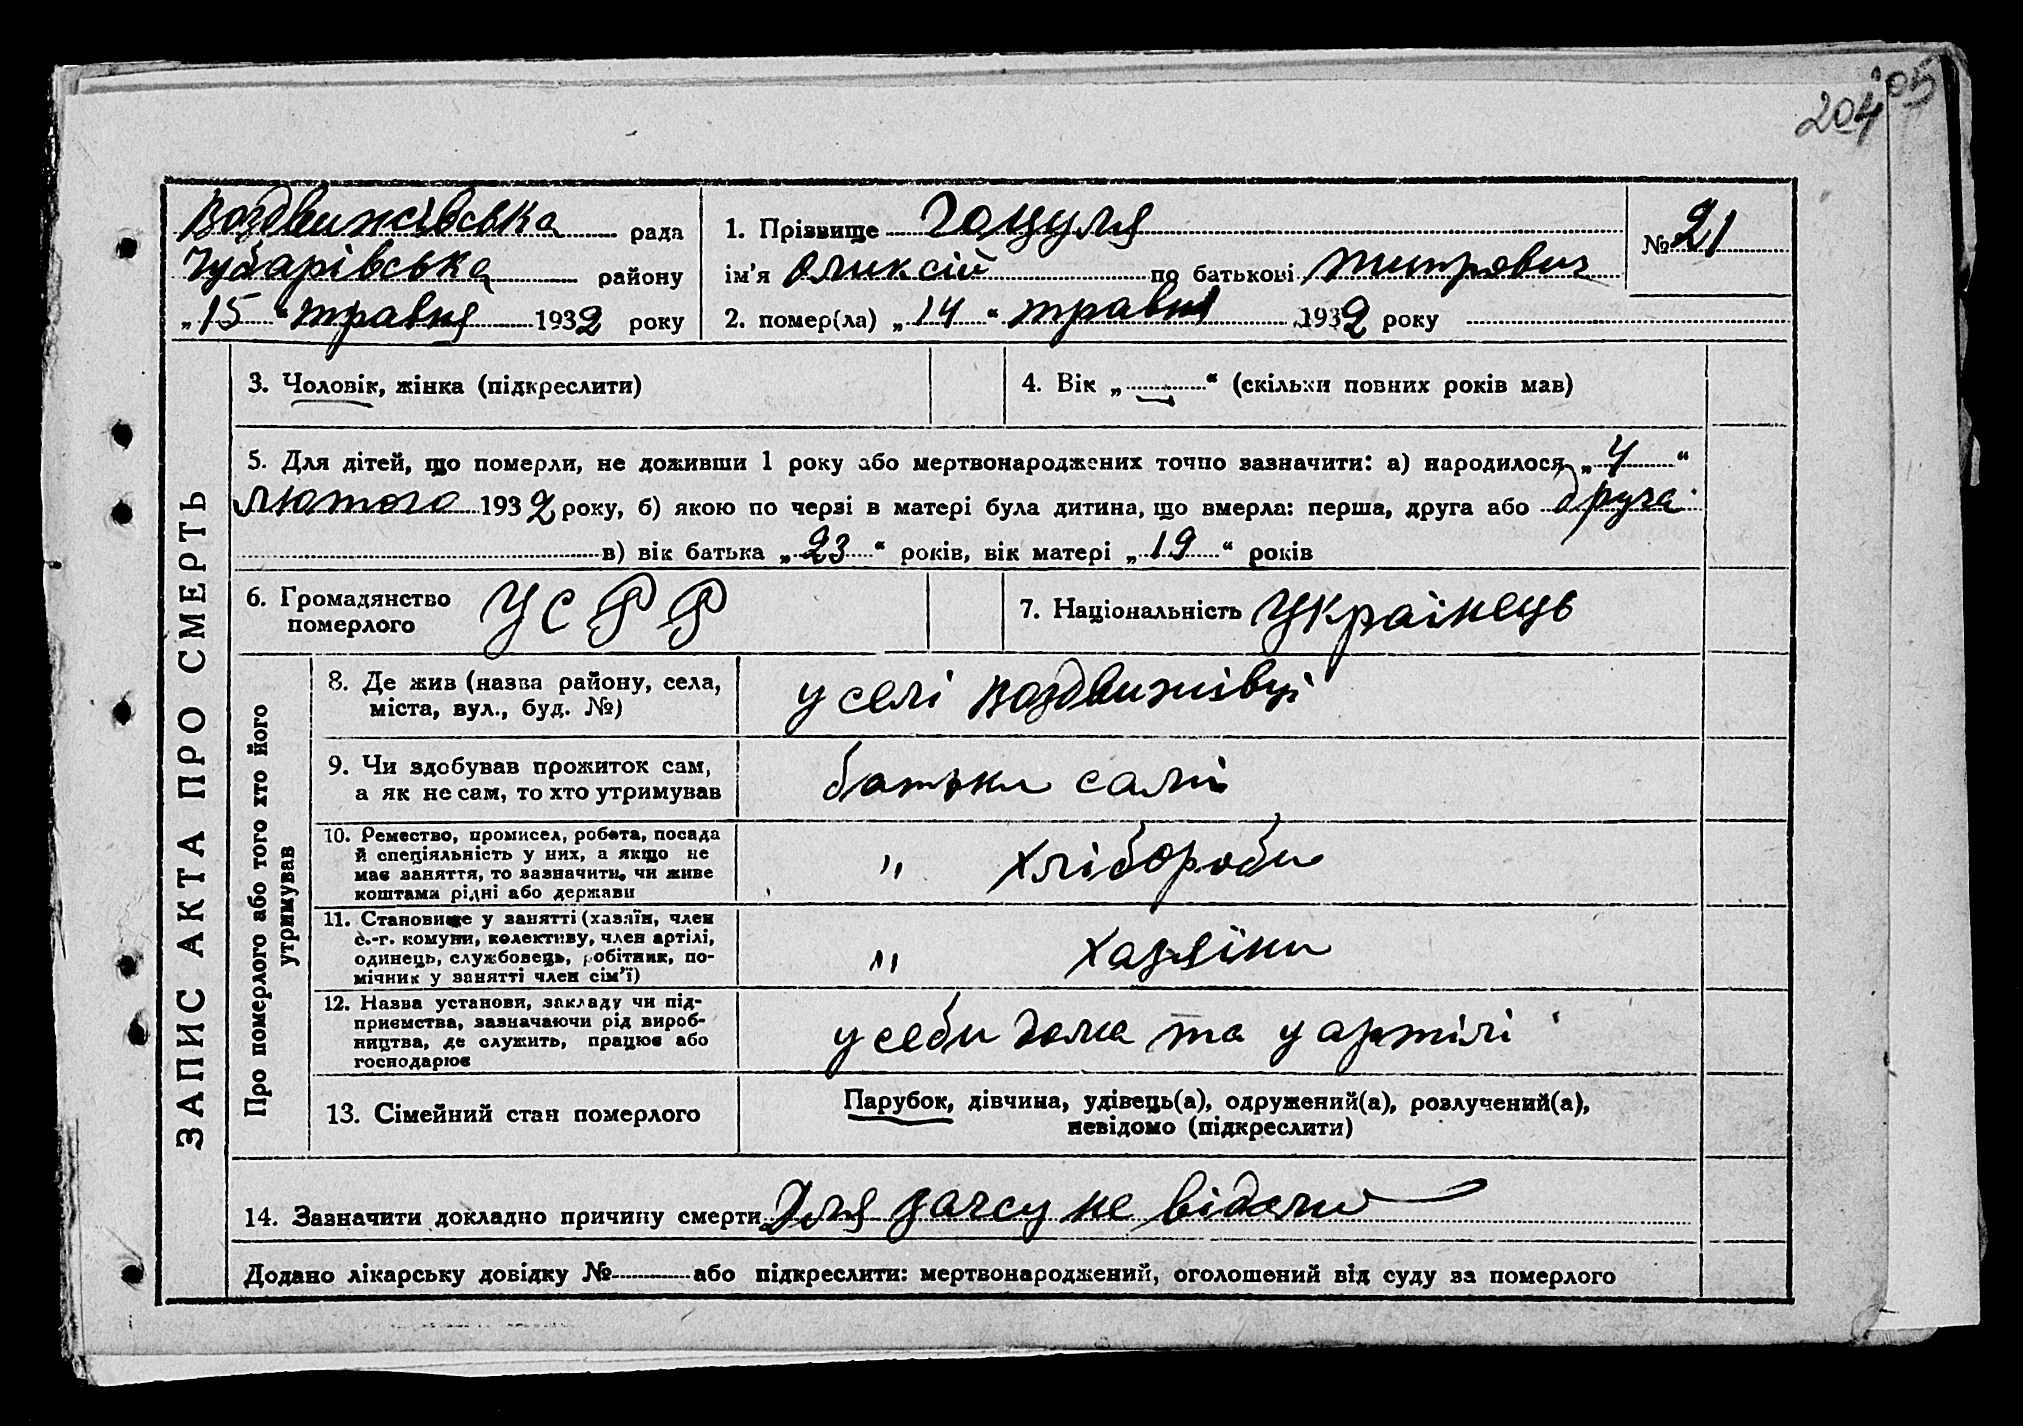 204
05
Воздвижівська рада
Чубарівська району
„15“ травня 1932 року
1. Прізвище Гацуля
ім'я Оликсій по батькові Митрович
2. помер(ла) „14“ травня 1932 року
№ 21
ЗАПИС АКТА ПРО СМЕРТЬ
3. Чоловік, жінка (підкреслити)
4. Вік „ “ (скільки повних років мав)
5. Для дітей, що померли, не доживши 1 року або мертвонароджених точно зазначити: а) народилося „4“
лютого 1932 року, б) якою по черзі в матері була дитина, що вмерла: перша, друга або друга
в) вік батька „23“ років, вік матері „19“ років
6. Громадянство
померлого
УСРР
7. Національність Українець
Про померлого або того хто його
утримував
8. Де жив (назва району, села,
міста, вул., буд. №)
у селі Воздвижівці
9. Чи здобував прожиток сам,
а як не сам, то хто утримував
батьки самі
10. Ремество, промисел, робота, посада
й спеціяльність у них, а якщо не
має заняття, то зазначити, чи живе
коштами рідні або держави
" хлібороби
11. Становище у занятті (хазяїн, член
с.-г. комуни, колективу, член артілі,
одинець, службовець, робітник, по-
мічник у занятті член сім'ї)
" хазяіни
12. Назва установи, закладу чи під-
приємства, зазначаючи рід вироб-
ництва, де служить, працює або
господарює
у себи дома та у артілі
13. Сімейний стан померлого
Парубок, дівчина, удівець(а), одружений(а), розлучений(а),
невідомо (підкреслити)
14. Зазначити докладно причину смерти Для загсу не відоми
Додано лікарську довідку № або підкреслити: мертвонароджений, оголошений від суду за померлого